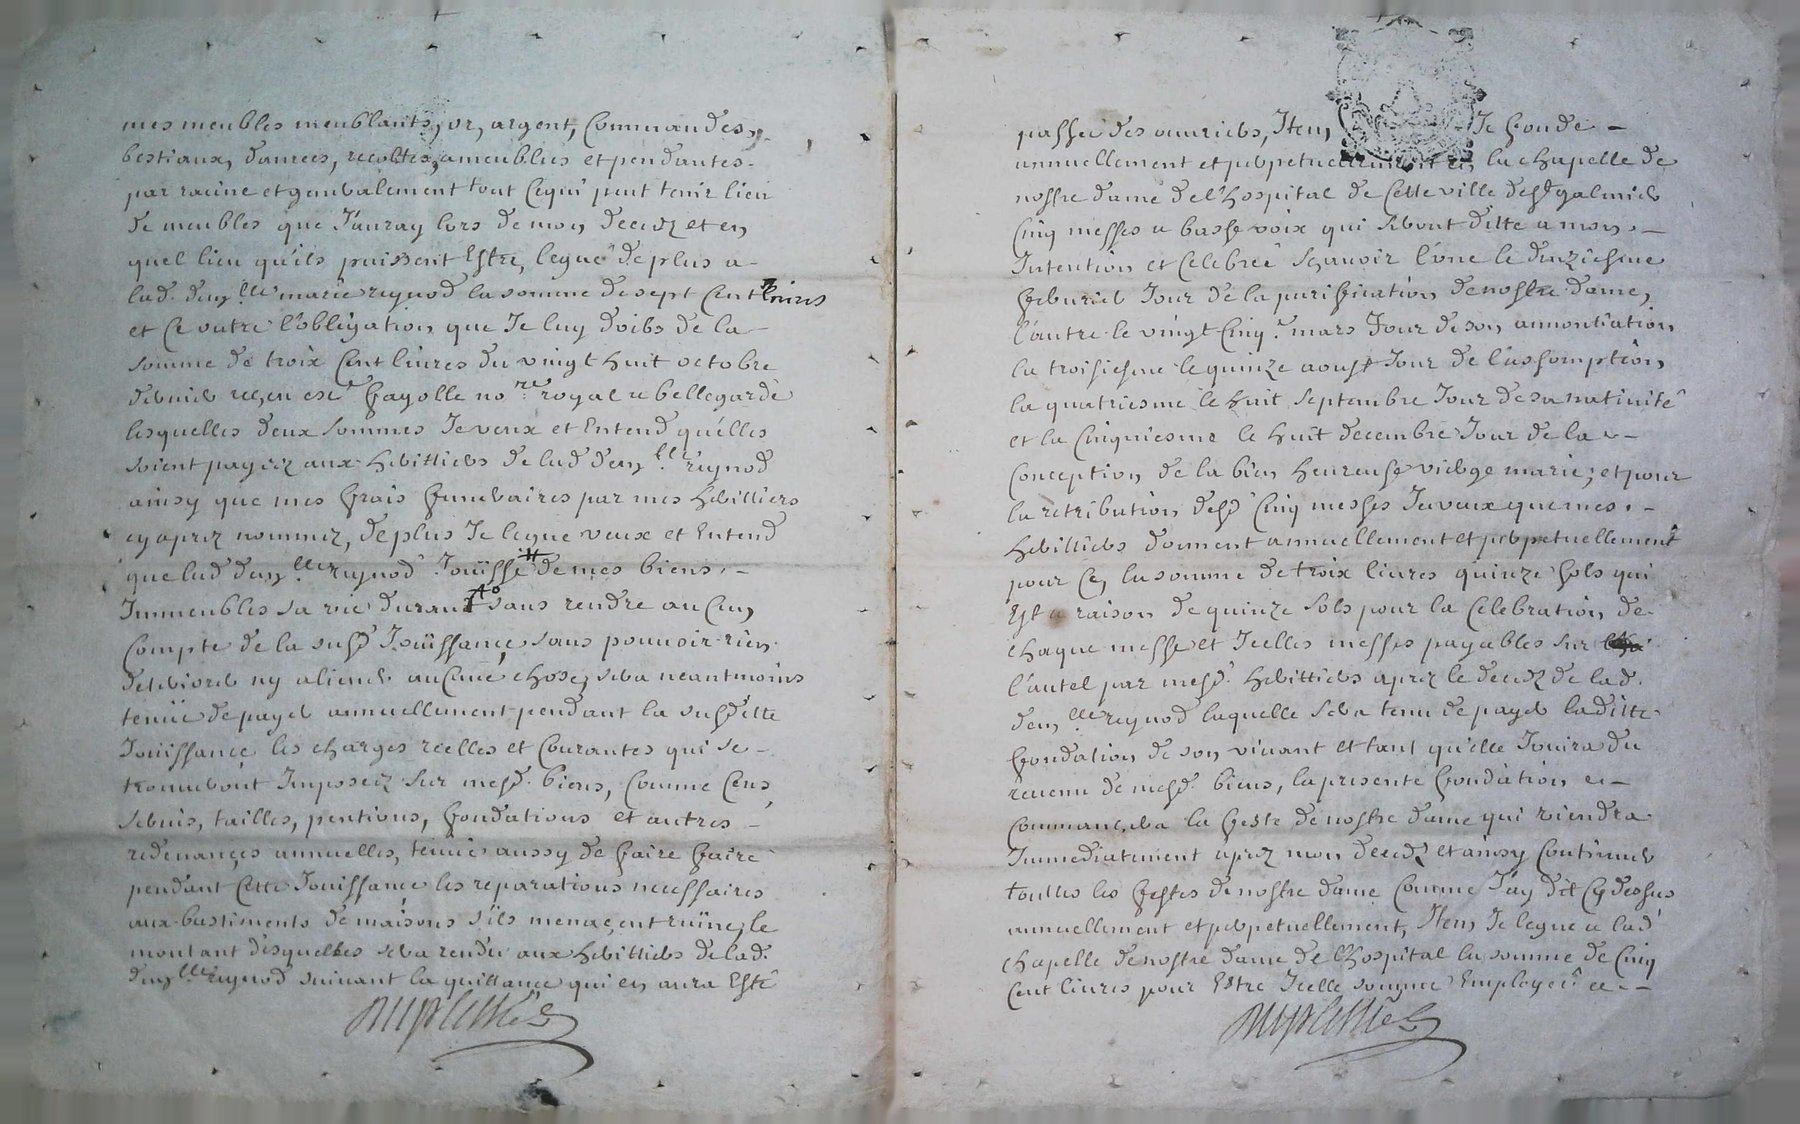 mes meubles meublants, or, argent, Commandes,
bestiaux, danrées, recoltes, ameublies et pendantes
par racine et generalement tout Cequi peut tenir lieu
de meubles que J'auray lors de mon decedz et en
quel lieu qu'ils puissent Estre, legue de plus a
lad. dem.lle marie reynod la somme de sept Cent livres
et Ce outre l'obligation que Je luy doibs de la
somme de troix Cent livres du vingt huit octobre
dernier reçeu et Fayolle no.re royal a bellegarde
lesquelles deux sommes Je veux et Entend qu'elles
soient payéez aux heritiers de lad dem.lle reynod
ainsy que mes frais funeraires par mes heritiers
cy aprez nommez, de plus Je legue veux et Entend
que lad dem.lle reynod Joüisse de mes biens
Immeubles sa vie durant sans rendre auCun
Compte de la susd Joüissance, sans pouvoir rien
deteriorer ny aliener auCune chose, sera neantmoins
tenüe de payer annuellement pendant la susditte
Jouissance les charges reelles et Courantes qui se
trouveront Imposéez sur mesd. biens, Comme Cens,
servis, tailles, pentions, fondations et autres
redevances annuelles, tenüe aussy de faire faire
pendant Cette Jouissance les reparations necessaires
aux bastiments de maisons s'ils menaçent ruine, le
montant desquelles sera rendu aux heritiers de lad.
dem.lle reynod suivant la quittance qui en aura Esté
passée des ouvriers, Item, Je fonde
annuellement et perpetuellement en la chapelle de
nostre dame de l'hospital de Cette ville de st galmier
Cinq messes a basse voix qui seront ditte a mon
Intention et Celebrée sçavoir l'une le deuziesme
febvrier Jour de la purification de nostre dame,
l'autre le vingt Cinq.e mars Jour de son annontiation
la troisiesme le quinze aoust Jour de l'assomption,
la quatriesme le huit septembre Jour de sa nativité
et la Cinquiesme le huit decembre Jour de la
Conception de la bien heureuse vierge marie; et pour
la retribution desd Cinq messes Je veux que mes
heritiers donnent annuellement et perpetuellement
pour Ce, la somme de troix livres quinze sols qui
Est a raison de quinze sols pour la Celebration de
chaque messe et Icelles messes payables sur
l'autel par mesd. heritiers aprez le decedz de lad.
dem.lle reynod laquelle sera tenu de payer laditte
fondation de son vivant et tant qu'elle Jouira du
revenu de mesd. biens, la presente fondation
Commancera la feste de nostre dame qui viendra
Immediatement aprez mon decedz et ainsy Continuer
touttes les festes de nostre dame Comme J'ay dit Cy dessus
annuellement et perpetuellement, Item Je legue a lad
chapelle de nostre dame de l'hospital la somme de Cinq
Cent livres pour Estre Icelle somme Employée a